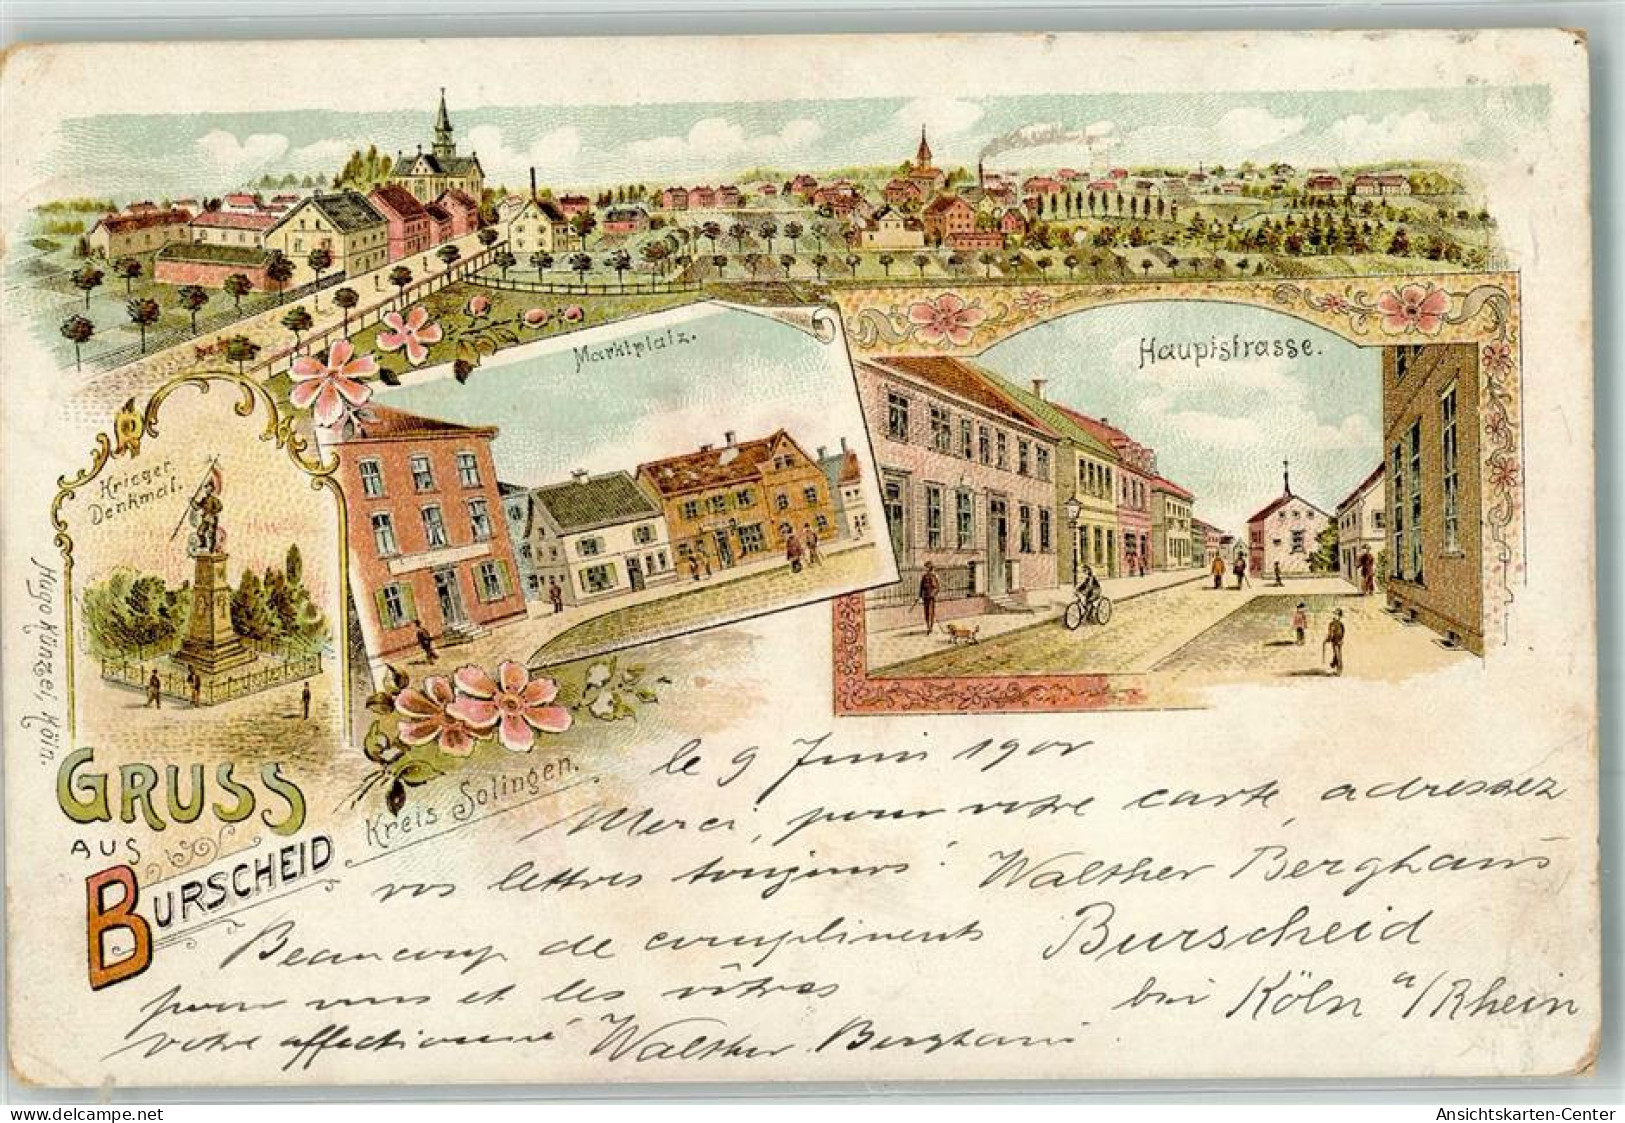 Marktplatz.
Hauptstrasse.
Krieger.
Denkmal.
Hugo Künzel, Köln.
GRUSS
AUS
BURSCHEID
Kreis Solingen.
le 9 Juin 190
Merci, pour votre carte, adressez
vos lettres toujours: Walther Berghaus
Beaucoup de compliments Burscheid
pour vous et les vôtres bei Köln a/Rhein
votre affectionné Walther Berghaus.
delcampe.net
Ansichtskarten-Center